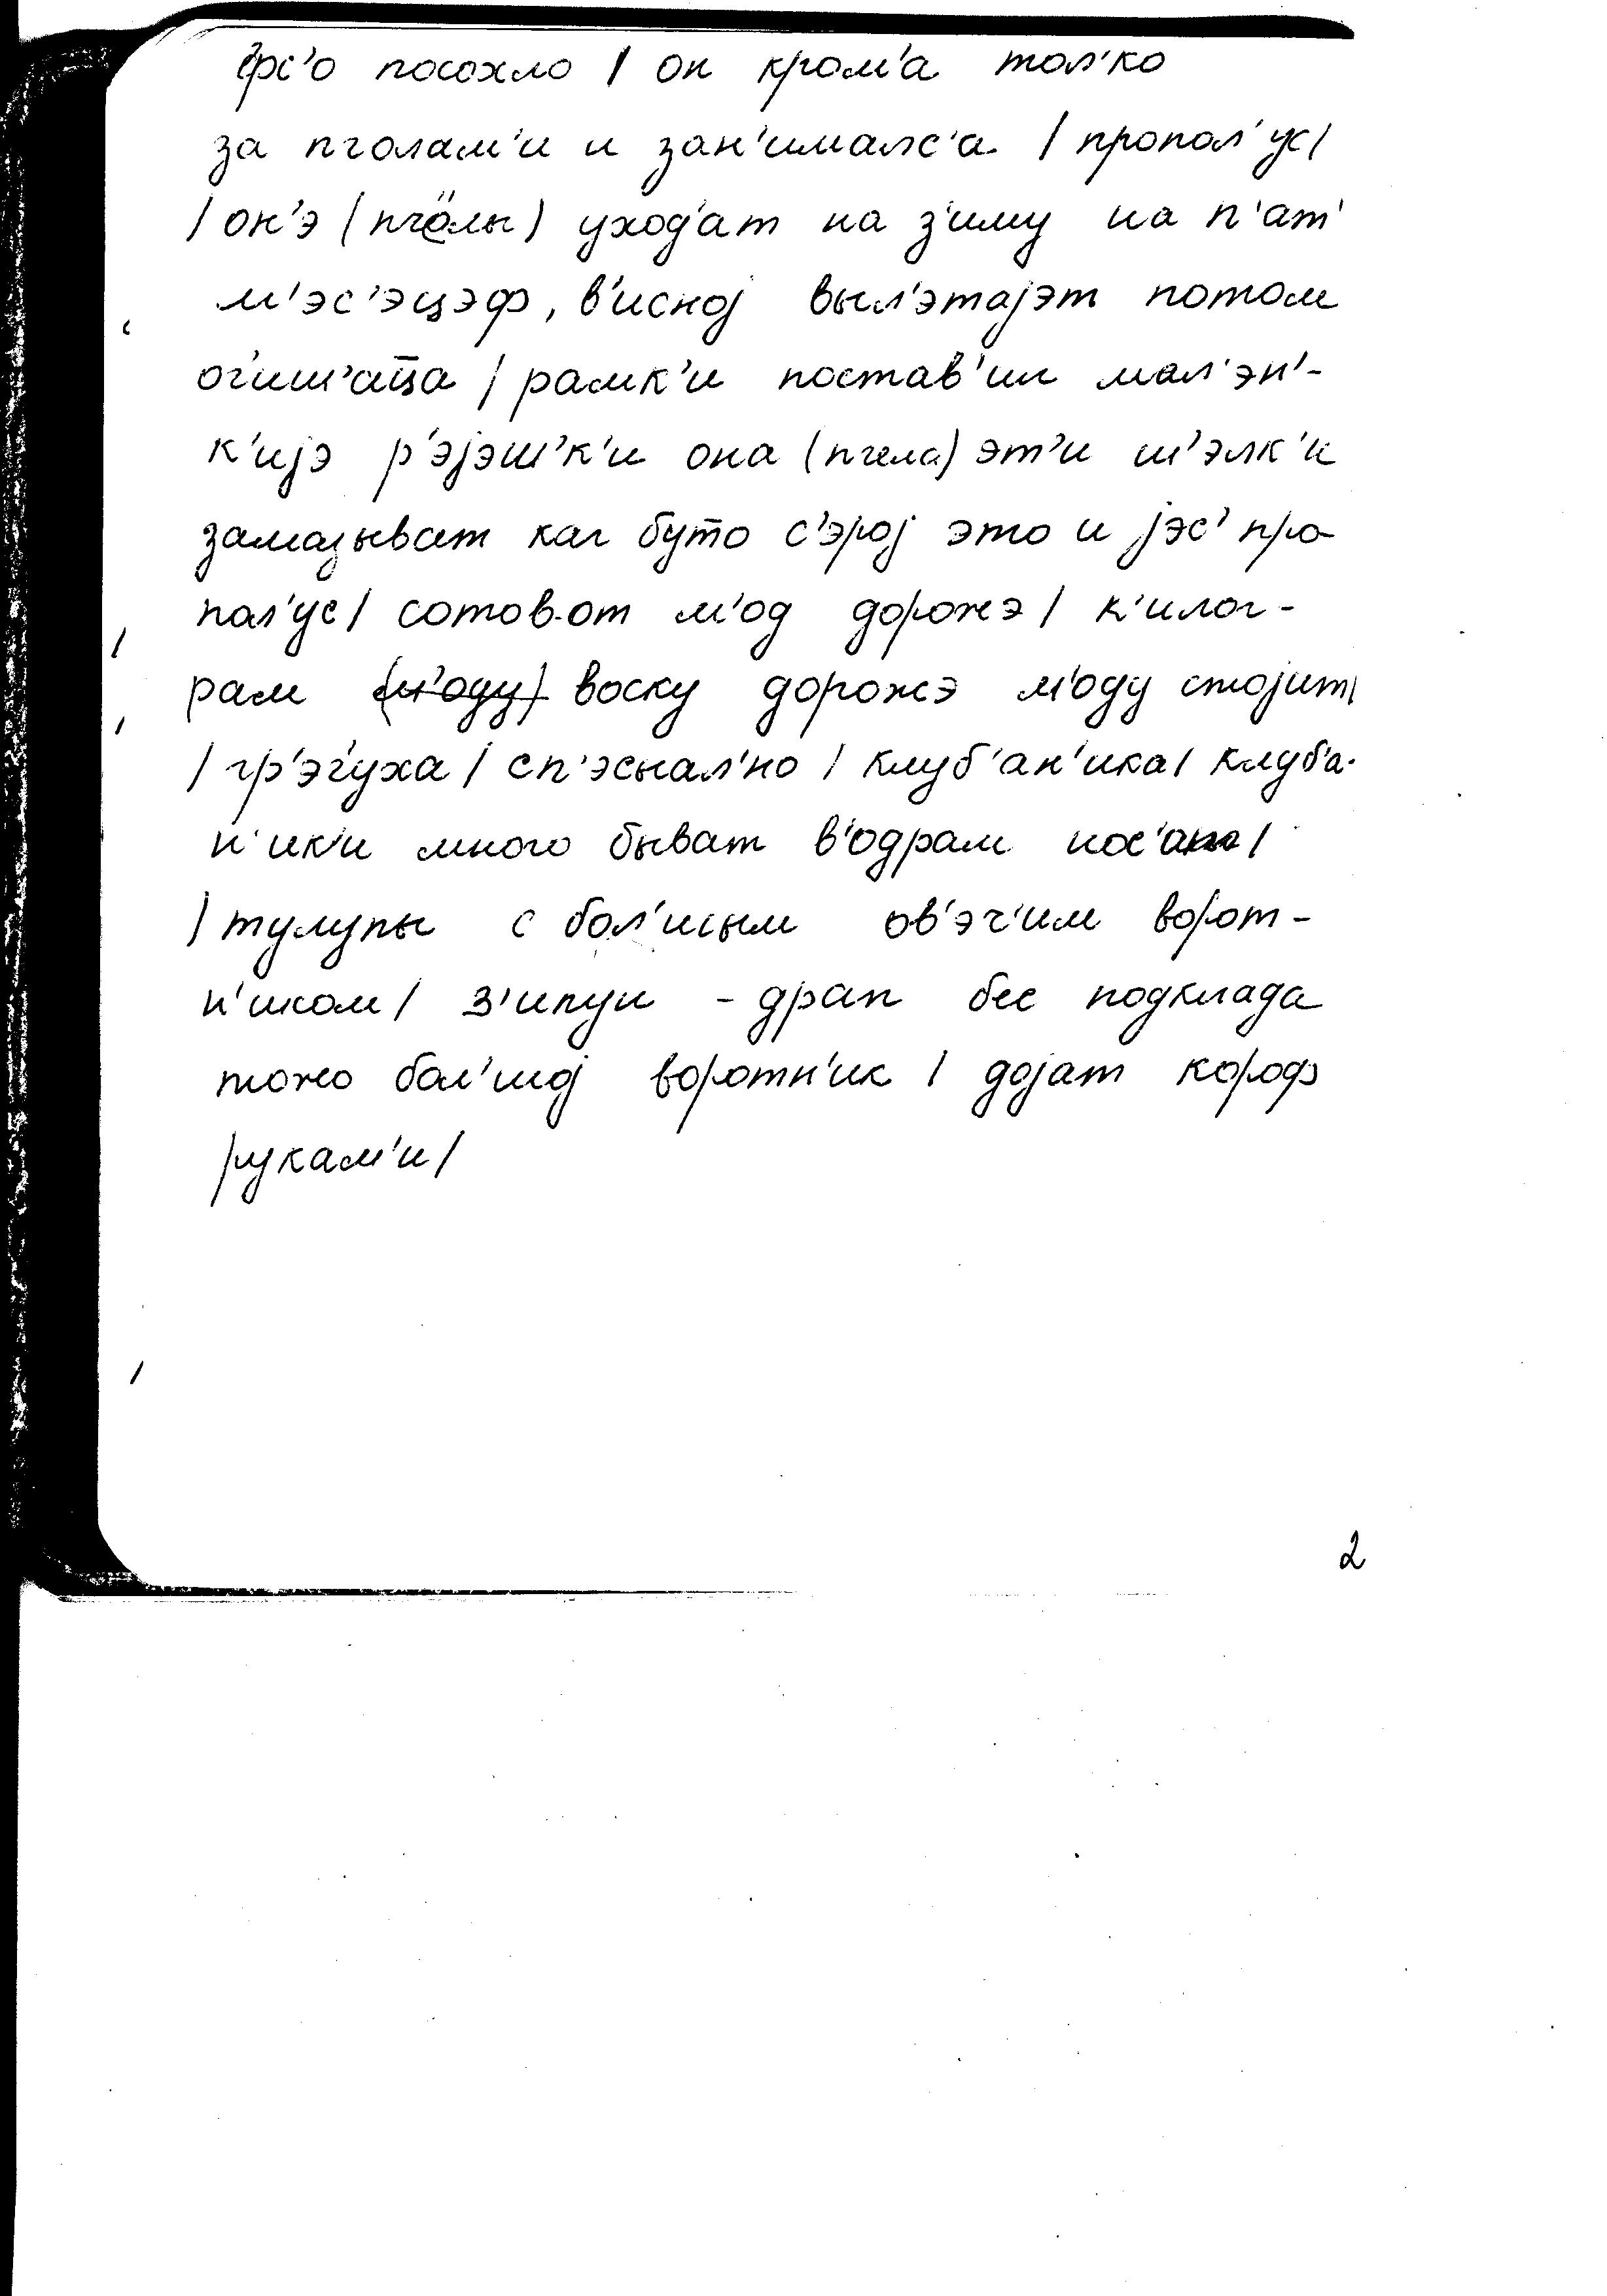 фс'о посохло / он кром'а тол'ко
за пчолам'и и зан'ималс'а / пропол'ус/
/ он'э (пчёлы) уход'ат на з'иму на п'ат'
м'эс'эцэф, в'исној выл'этајэт потом
оч'иш'аца / рамк'и постав'ил мал'эн'-
к'ијэ р'эјэш'к'и она (пчела) эт'и ш'элк'и
замазыват каг буто с'эрој это и јэс' про-
пал'ус/ сотов от м'од дорожэ / к'илог-
рам (м'оду) воску дорожэ м'оду стојит/
/ гр'эч'уха / сп'эсыал'но / клуб'ан'ика/ клуб'а-
н'ик'и много быват в'одрам нос'ат /
/ тулупы с бол'шым ов'эч'им ворот-
н'иком/ з'ипун - драп бес подклада
тожо бол'шој воротн'ик / дојат короф
рукам'и/
2